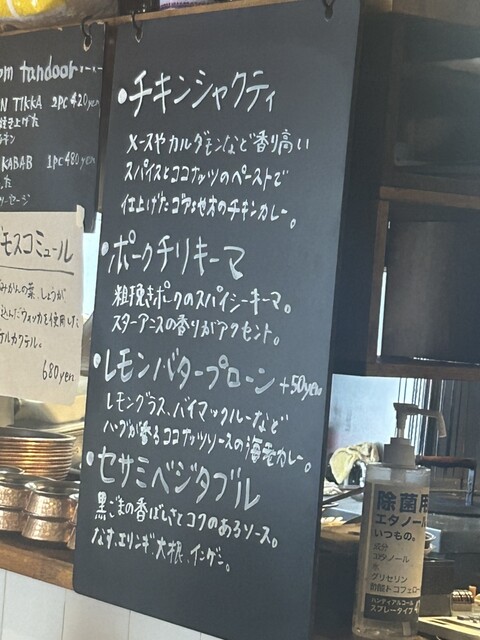 om tandoor
N TIKKA 1pc 420yen
焼き上げた
チキン
KABAB 1pc 480yen
した
ソーセージ
モスコミュール
みかんの葉、しょうが
込んだウォッカを使用した
カクテル。
680yen
・チキンシャクティ
メースやカルダモンなど香り高い
スパイスとココナッツのペーストで
仕上げたゴア地方のチキンカレー。
・ポークチリキーマ
粗挽きポークのスパイシーキーマ。
スターアニスの香りがアクセント。
・レモンバタープローン +50yen
レモングラス、バイマックルーなど
ハーブが香るココナッツソースの海老カレー。
・セサミベジタブル
黒ごまの香ばしさとコクのあるソース。
なす、エリンギ、大根、インゲン。
除菌用
エタノール
いつもの。
成分
エタノール
水
グリセリン
酢酸トコフェロー
ハンディアルコール
スプレータイプ